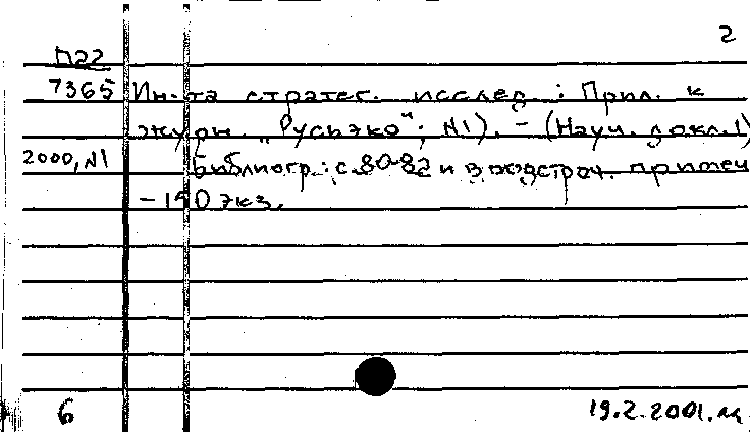 2
П22
7365 Ин-та стратег. исслед.: Прил. к
журн. "Русьэко"; N1). - (Науч. докл.1)
2000, N1 Библиогр.: с.80-82 и в подстроч. примеч
- 150 экз.
6
19.2.2001.